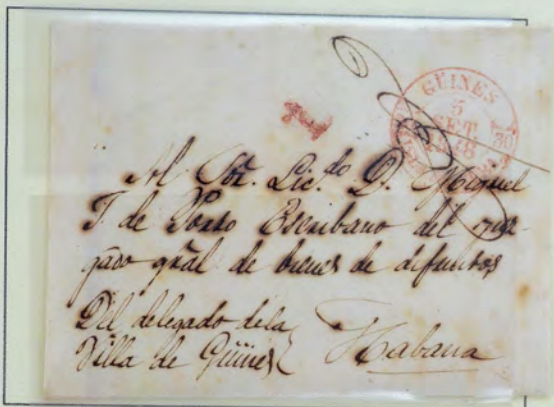 GÜINES
5
SET.
1848
1
Al Sor. Lic.do D. Miguel
T de Porto Escribano del Juz-
gado gral de bienes de difuntos
Del delegado de la
Villa de Güines
Habana